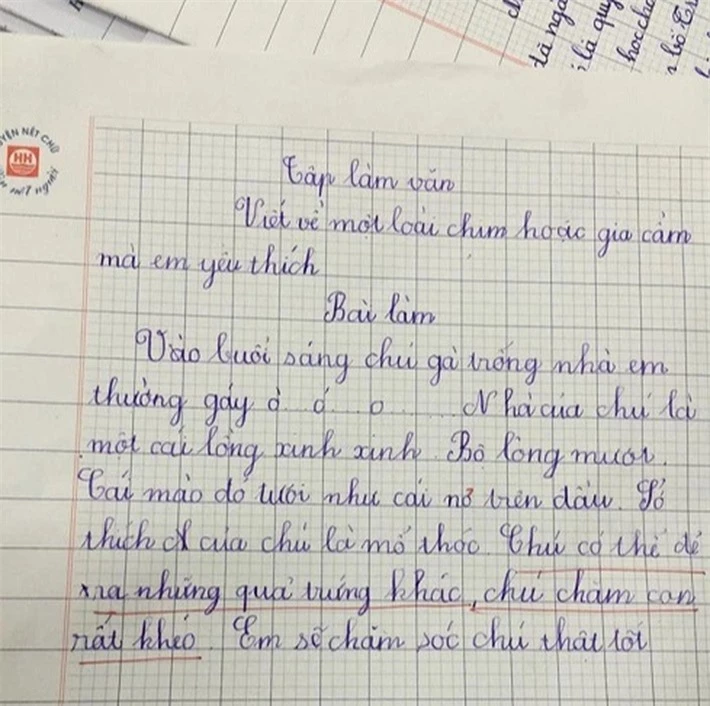 đã ngà
là quy
học chă
HH
Tập làm văn
Viết về một loài chim hoặc gia cầm
mà em yêu thích
Bài làm
Vào buổi sáng chú gà trống nhà em
thường gáy ò .. ó .. o ..... Nhà của chú là
một cái lồng xinh xinh. Bộ lông mượt.
Cái mào đỏ tươi như cái nơ trên đầu. Sở
thích của chú là mổ thóc. Chú có thể đẻ
ra những quả trứng khác, chú chăm con
rất khéo. Em sẽ chăm sóc chú thật tốt